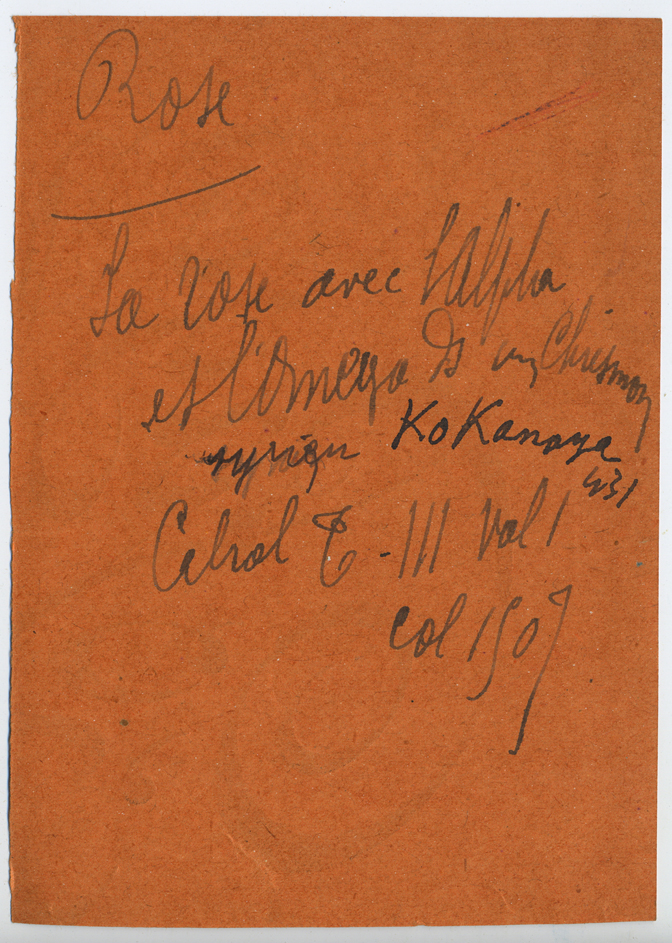 Rose
La rose avec l'Alpha
et l'Omega ds un Chrismon
syrien KoKanaya
431
Cabrol T. III Vol 1
col 1507